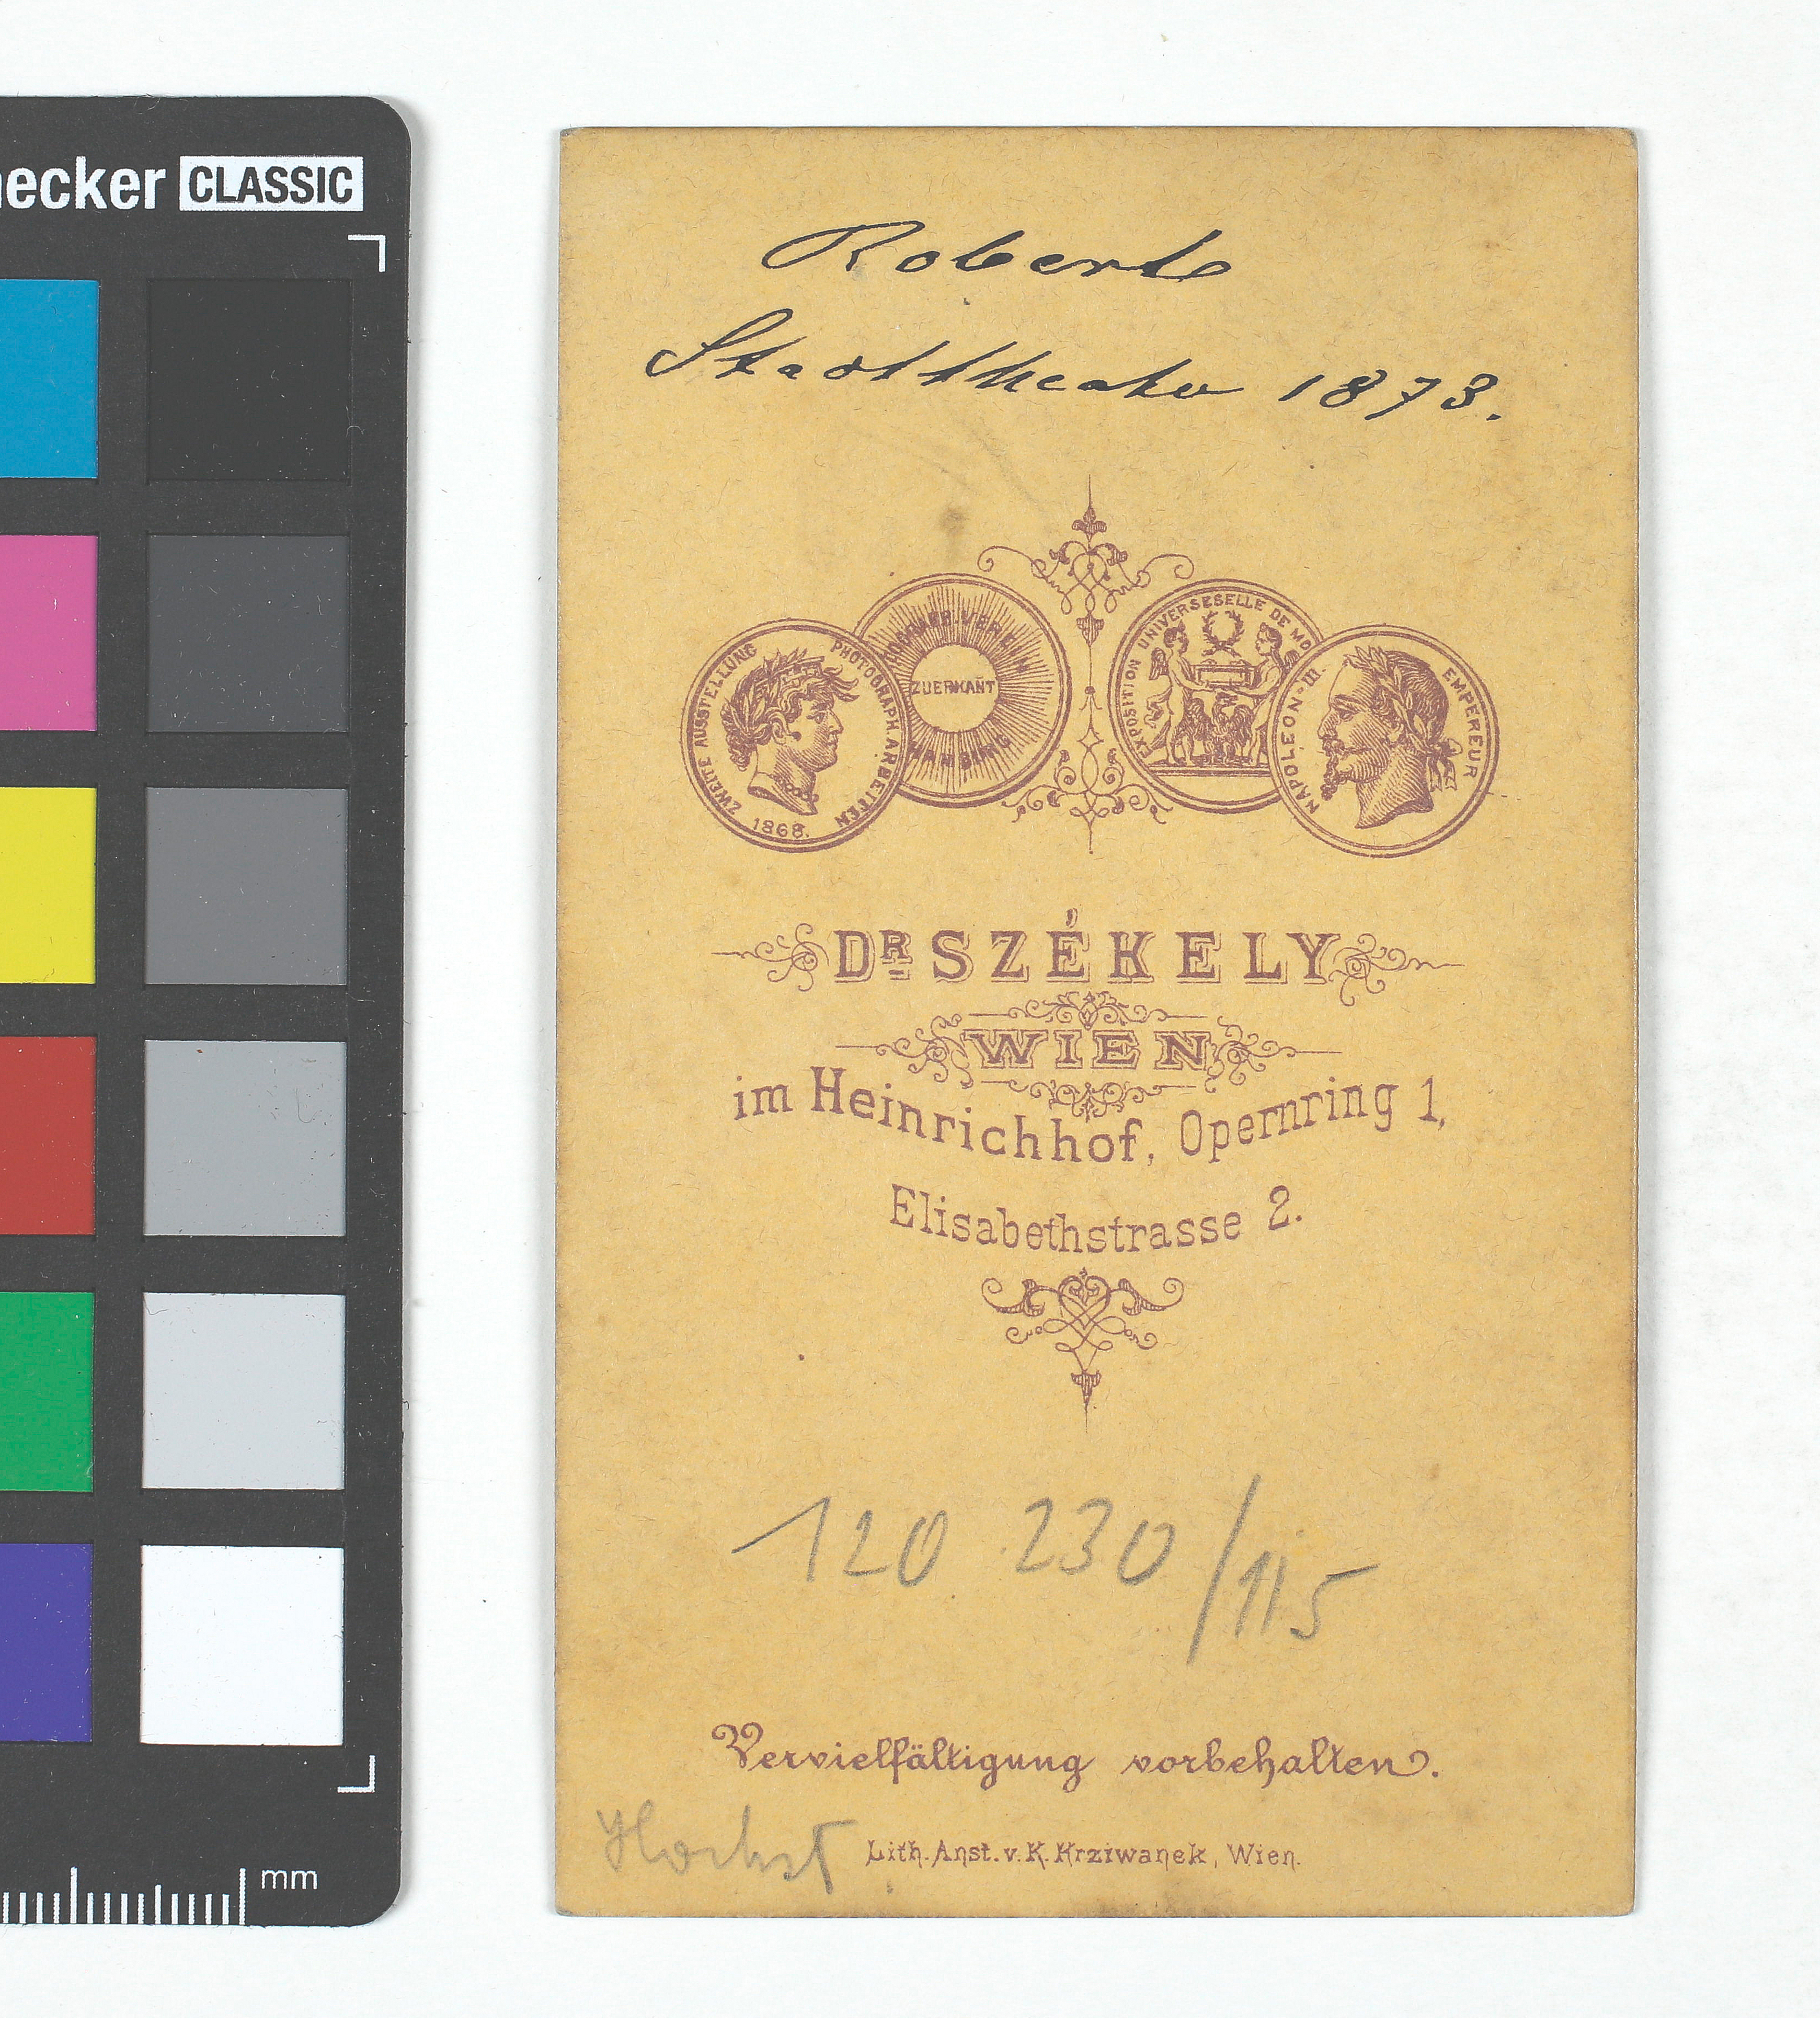 ecker CLASSIC
Roberts
Stadttheater 1873.
ZWEITE AUSSTELLUNG PHOTOGRAPH. ARBEITEN
1868.
ZUERKAÑT
HAMBURG
EXPOSITION UNIVERSESELLE DE MO
NAPOLEON III. EMPEREUR
DR SZÉKELY
WIEN
im Heinrichhof, Opernring 1,
Elisabethstrasse 2.
120 230/115
Vervielfältigung vorbehalten.
Lith. Anst. v. K. Krziwanek, Wien.
mm